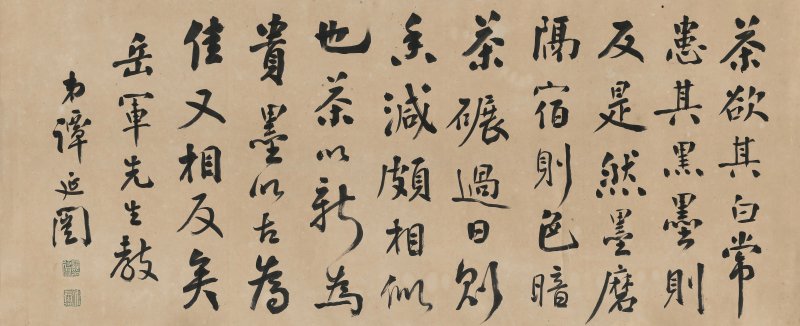 茶欲其白常
患其黑墨則
反是然墨磨
隔宿則色暗
茶碾過日則
香減頗相似
也茶以新為
貴墨以古為
佳又相反矣
岳軍先生教
弟譚延闓